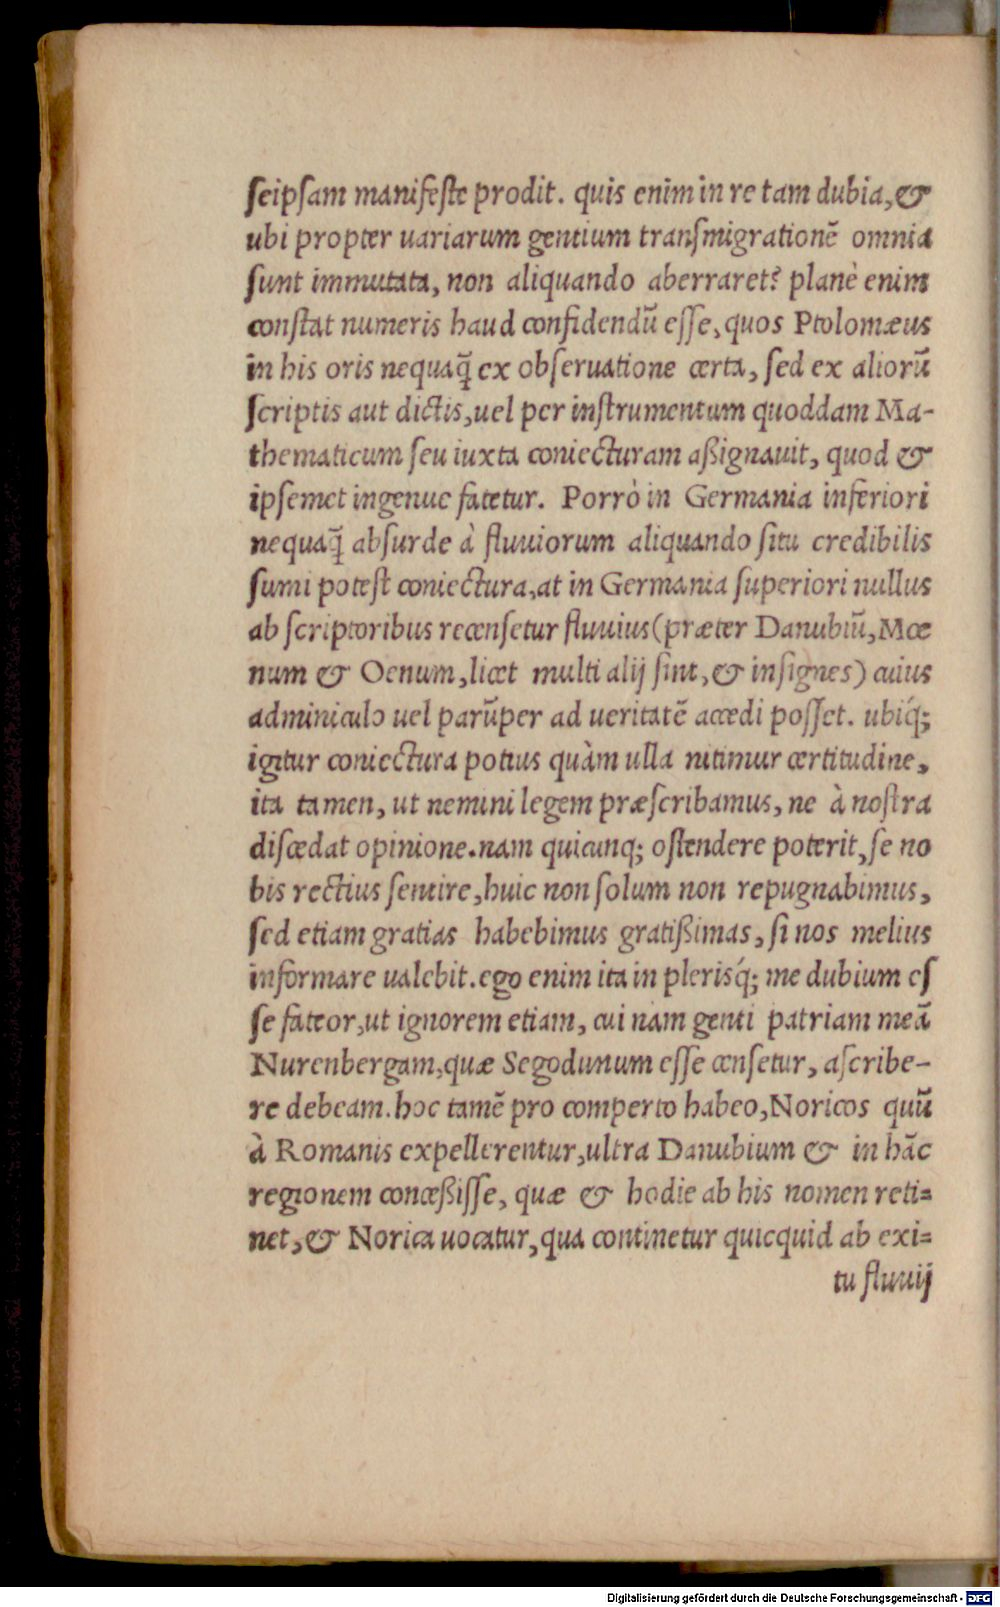 ſeipſam manifeſte prodit. quis enim in re tam dubia, &
ubi propter uariarum gentium tranſmigrationē omnia
ſunt immutata, non aliquando aberraret? planè enim
conſtat numeris haud confidendū eſſe, quos Ptolomæus
in his oris nequaq̃ ex obſeruatione certa, ſed ex aliorū
ſcriptis aut dictis, uel per inſtrumentum quoddam Ma-
thematicum ſeu iuxta coniecturam aßignauit, quod &
ipſemet ingenue fatetur. Porrò in Germania inferiori
nequaq̃ abſurde à fluuiorum aliquando ſitu credibilis
ſumi poteſt coniectura, at in Germania ſuperiori nullus
ab ſcriptoribus recenſetur fluuius (præter Danubiū, Mœ
num & Oenum, licet multi alij ſint, & inſignes) cuius
adminiculo uel parūper ad ueritatē accedi poſſet. ubiq́;
igitur coniectura potius quàm ulla nitimur certitudine,
ita tamen, ut nemini legem præſcribamus, ne à noſtra
diſcedat opinione. nam quicunq; oſtendere poterit, ſe no
bis rectius ſentire, huic non ſolum non repugnabimus,
ſed etiam gratias habebimus gratißimas, ſi nos melius
informare ualebit. ego enim ita in plerisq́; me dubium eſ
ſe fateor, ut ignorem etiam, cui nam genti patriam meā
Nurenbergam, quæ Segodunum eſſe cenſetur, aſcribe-
re debeam. hoc tamē pro comperto habeo, Noricos quū
à Romanis expellerentur, ultra Danubium & in hāc
regionem conceßiſſe, quæ & hodie ab his nomen reti-
net, & Norica uocatur, qua continetur quicquid ab exi-
tu fluuij
Digitalisierung gefördert durch die Deutsche Forschungsgemeinschaft - DFG